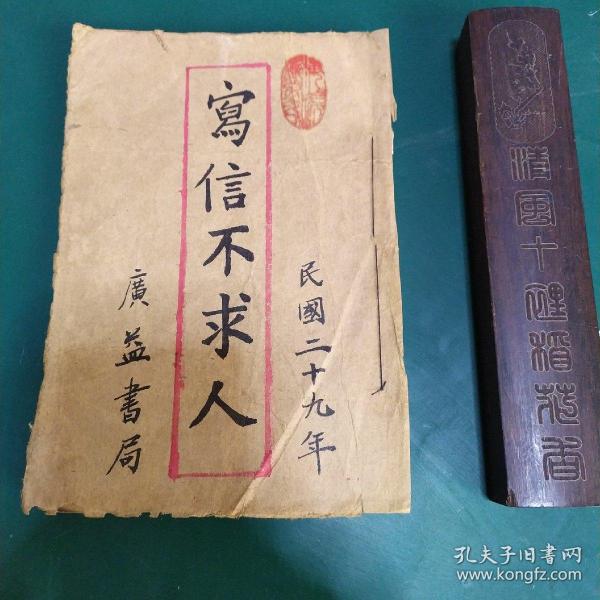 民國二十九年
寫信不求人
廣益書局
清風十里稻花香
孔夫子旧书网
www.kongfz.com